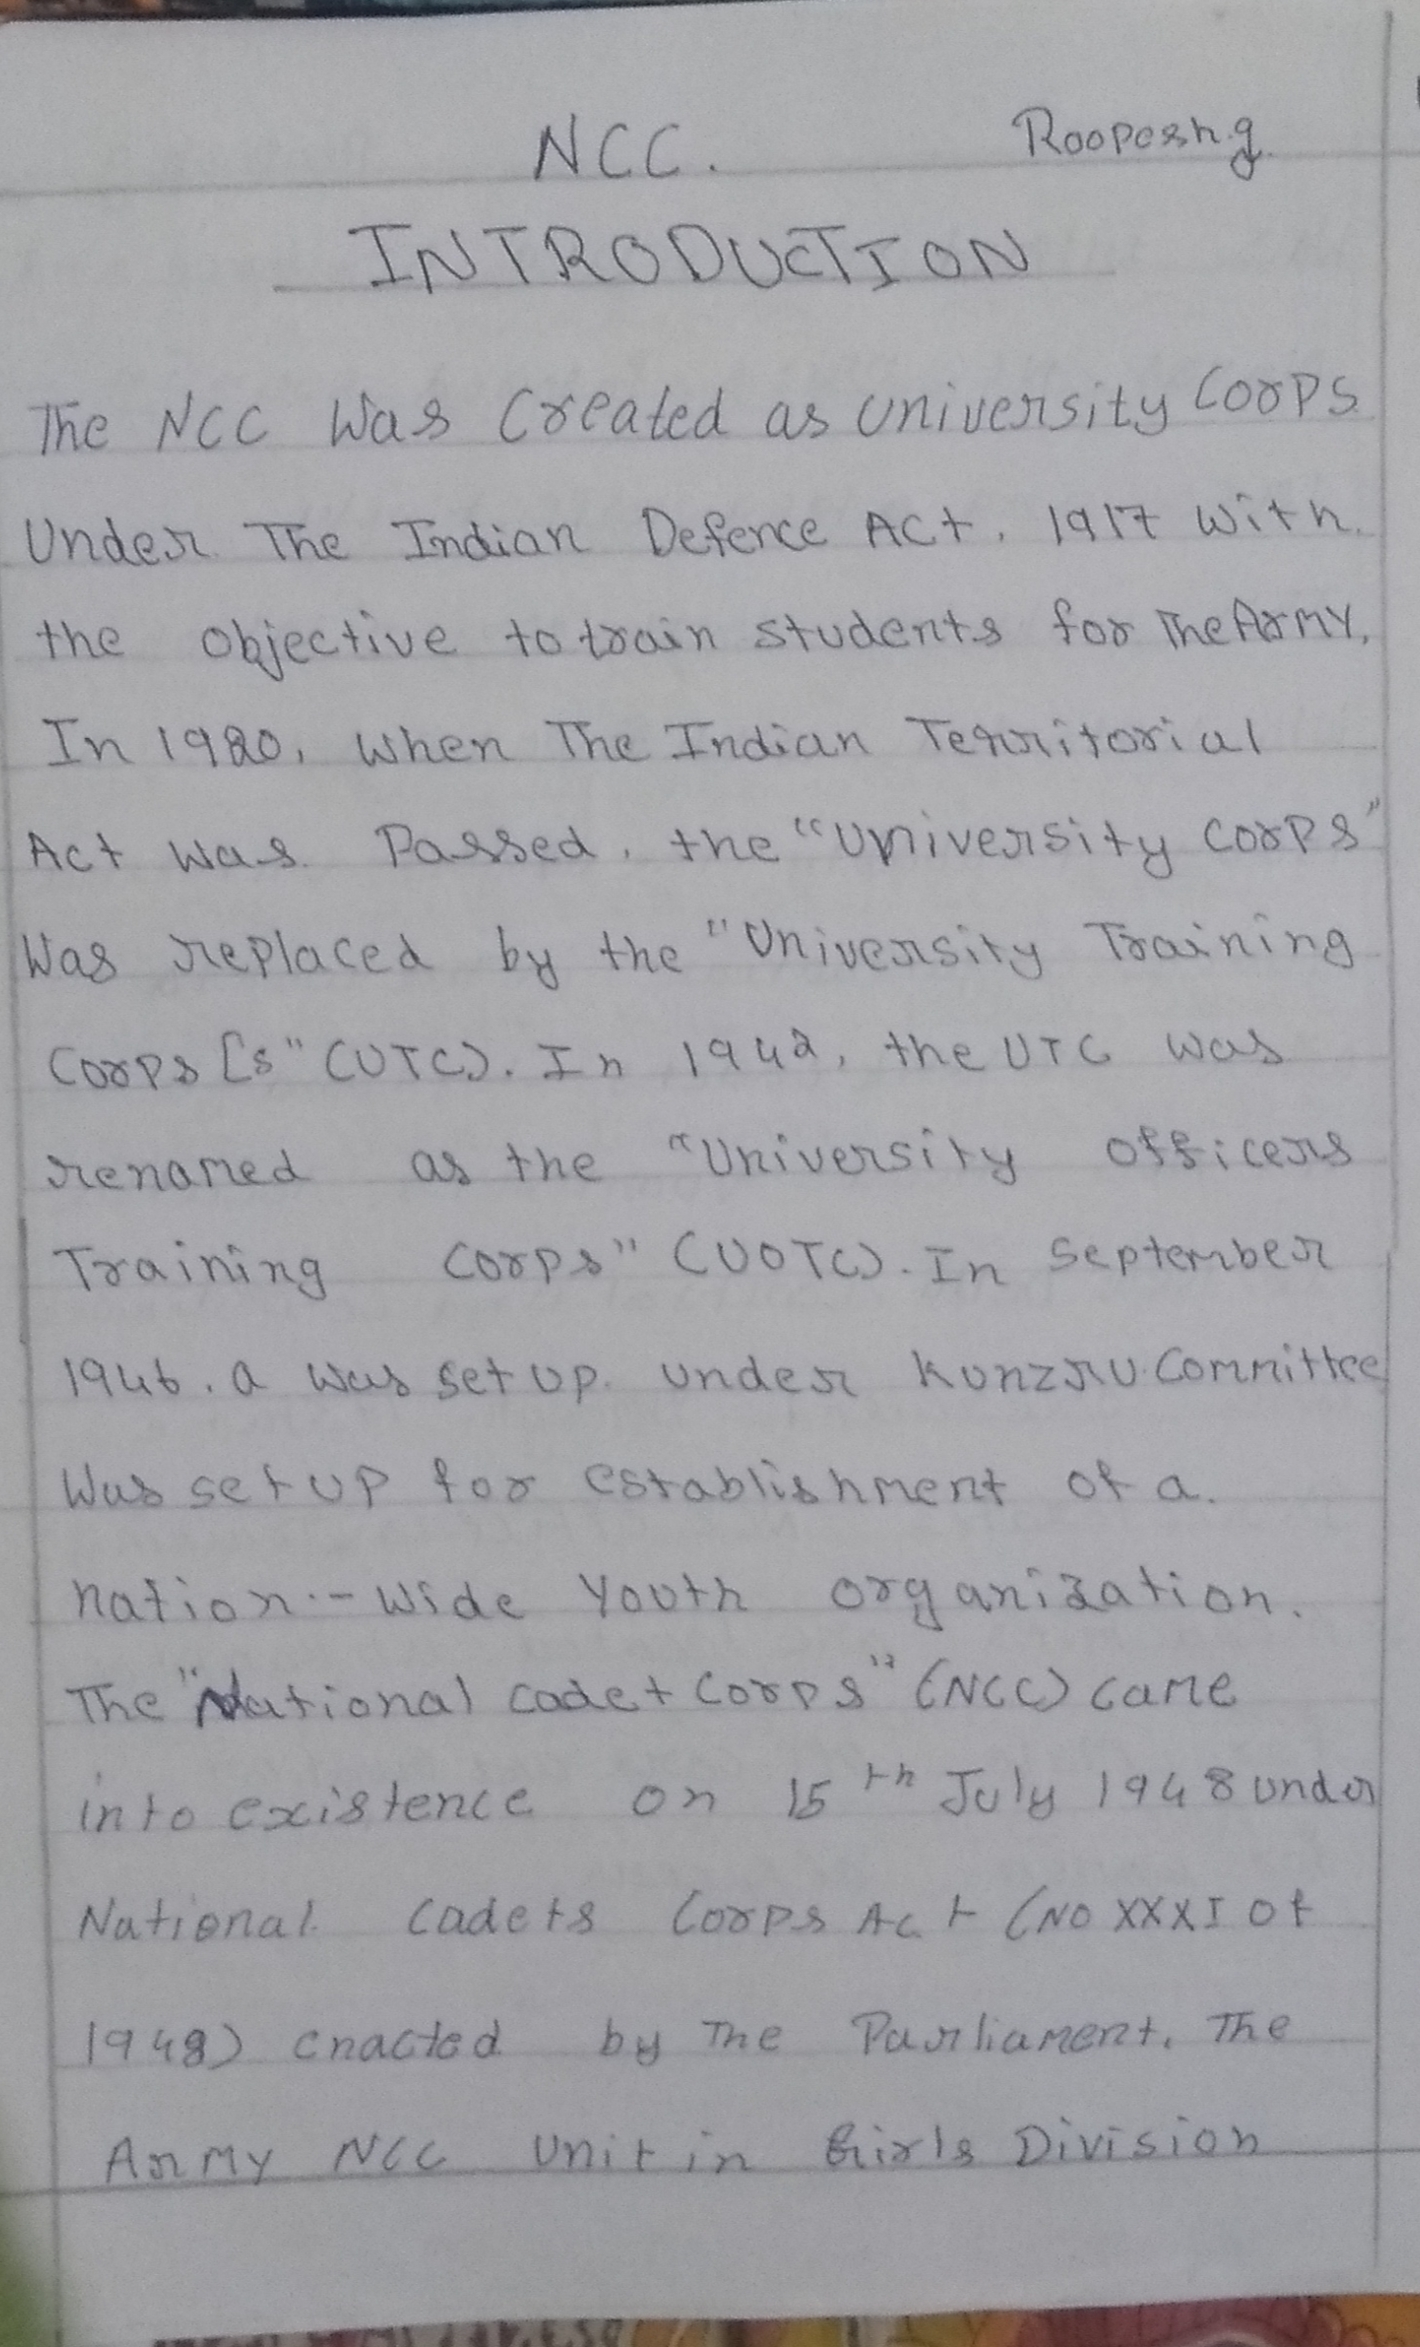 NCC. Roopesh.g
INTRODUCTION
The NCC Was Created as University Corps
Under The Indian Defence Act, 1917 With.
the objective to train students for The Army,
In 1920, when The Indian Territorial
Act was Passed, the "University Corps"
Was replaced by the "University Training
Corps [s" (UTC). In 1942, the UTC was
renamed as the "University officers
Training Corps" (UOTC). In September
1946, a was set up. under Kunzru Committee
Was set up for establishment of a.
nation.- wide Youth organization.
The "National Cadet Corps" (NCC) came
into existence on 15th July 1948 under
National Cadets Corps Act (NO XXXI of
1948) enacted by The Parliament. The
Army NCC Unit in Girls Division